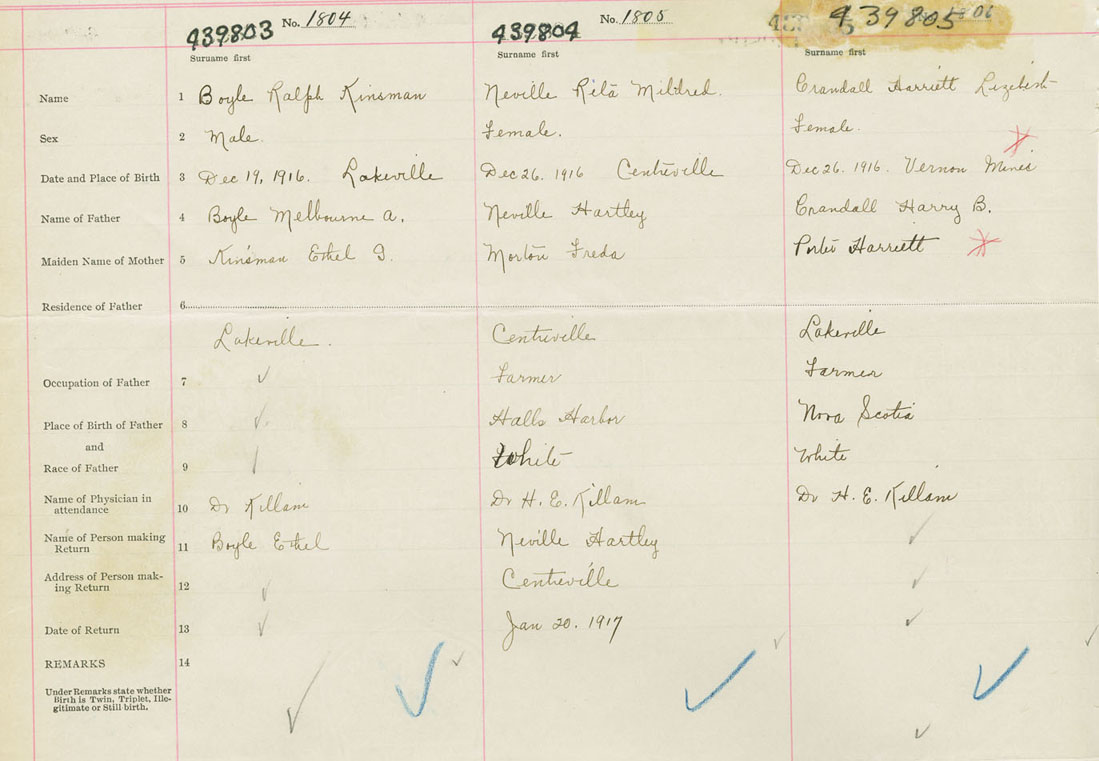 439803 No. 1804 439804 No. 1805 439805 1806
Surname first Surname first Surname first
Name 1 Boyle Ralph Kinsman Neville Rita Mildred. Crandall Harriett Lizebest
Sex 2 Male. Female. Female.
Date and Place of Birth 3 Dec 19, 1916. Lakeville Dec 26. 1916 Centreville Dec 26. 1916. Vernon Mines
Name of Father 4 Boyle Melbourne A. Neville Hartley Crandall Harry B.
Maiden Name of Mother 5 Kinsman Ethel Morton Freda Porter Harriett
Residence of Father 6
Lakeville. Centreville Lakeville
Occupation of Father 7 Farmer Farmer
Place of Birth of Father 8 Halls Harbor Nova Scotia
and
Race of Father 9 White White
Name of Physician in
attendance 10 Dr Killam Dr H. E. Killam Dr H. E. Killam
Name of Person making
Return 11 Boyle Ethel Neville Hartley
Address of Person mak-
ing Return 12 Centreville
Date of Return 13 Jan 20. 1917
REMARKS 14
Under Remarks state whether
Birth is Twin, Triplet, Ille-
gitimate or Still-birth.